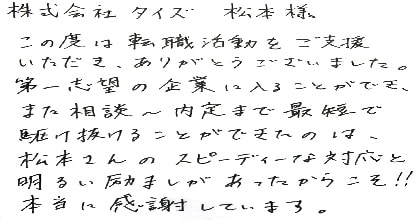 株式会社タイズ 松本様
この度は転職活動をご支援
いただき、ありがとうございました。
第一志望の企業に入ることができ、
また相談～内定まで最短で
駆け抜けることができたのは、
松本さんのスピーディーな対応と
明るい励ましがあったからこそ!!
本当に感謝しています。